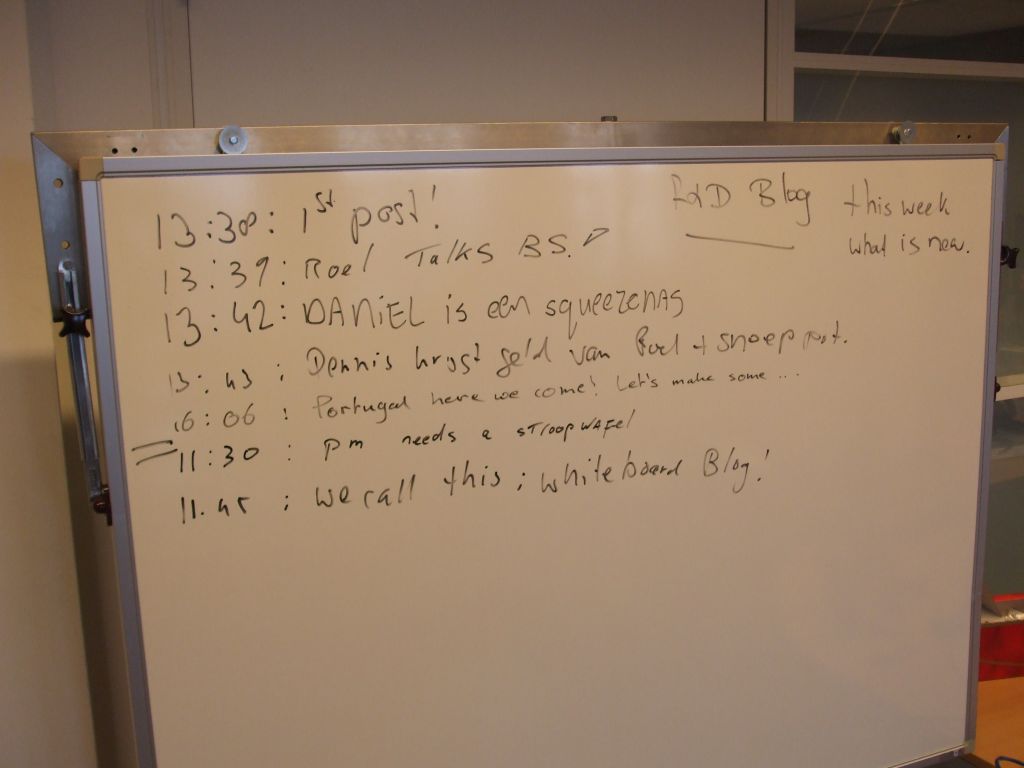 Blog
this week
what is new.
13:38: 1st post!
13:39: Roel Talks BS.
13:42: DANIEL is een squeezenas
13:43 : Dennis krygt geld van Roel + snoeppot.
16:06 : Portugal here we come! Let's make some ...
11:30 : pm needs a stroopwafel
11.45 : we call this : Whiteboard Blog!